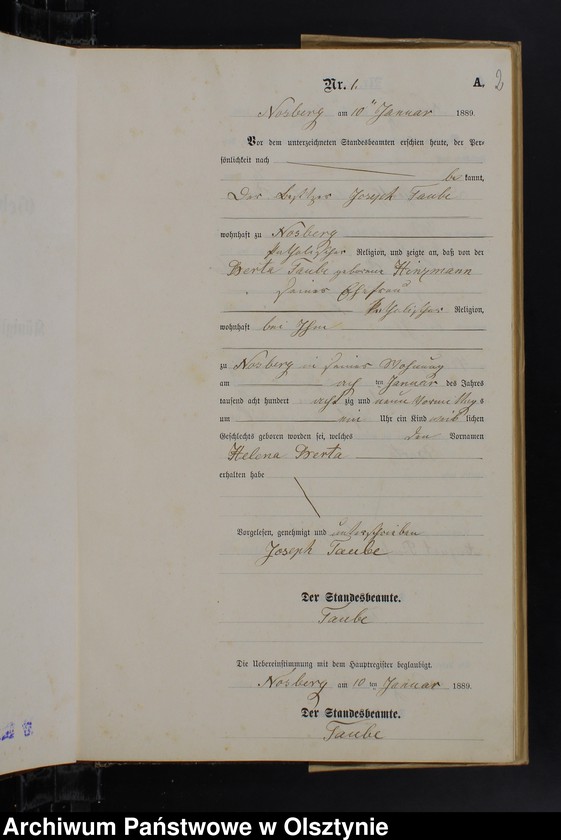 Nr. 1.
A. 2
Nosberg am 10ten Januar 1889.
Vor dem unterzeichneten Standesbeamten erschien heute, der Per-
sönlichkeit nach
be kannt,
Der Besitzer Joseph Taube
wohnhaft zu Nosberg
katholischer Religion, und zeigte an, daß von der
Berta Taube geborene Hinzmann
seiner Ehefrau
katholischer Religion,
wohnhaft bei Ihm
zu Nosberg in seiner Wohnung
am acht ten Januar des Jahres
tausend acht hundert acht zig und neun Vormittags
um ein Uhr ein Kind weib lichen
Geschlechts geboren worden sei, welches den Vornamen
Helena Berta
erhalten habe
Vorgelesen, genehmigt und unterschrieben
Joseph Taube
Der Standesbeamte.
Taube
Die Uebereinstimmung mit dem Hauptregister beglaubigt.
Nosberg am 10 ten Januar 1889.
Der Standesbeamte.
Taube
Archiwum Państwowe w Olsztynie